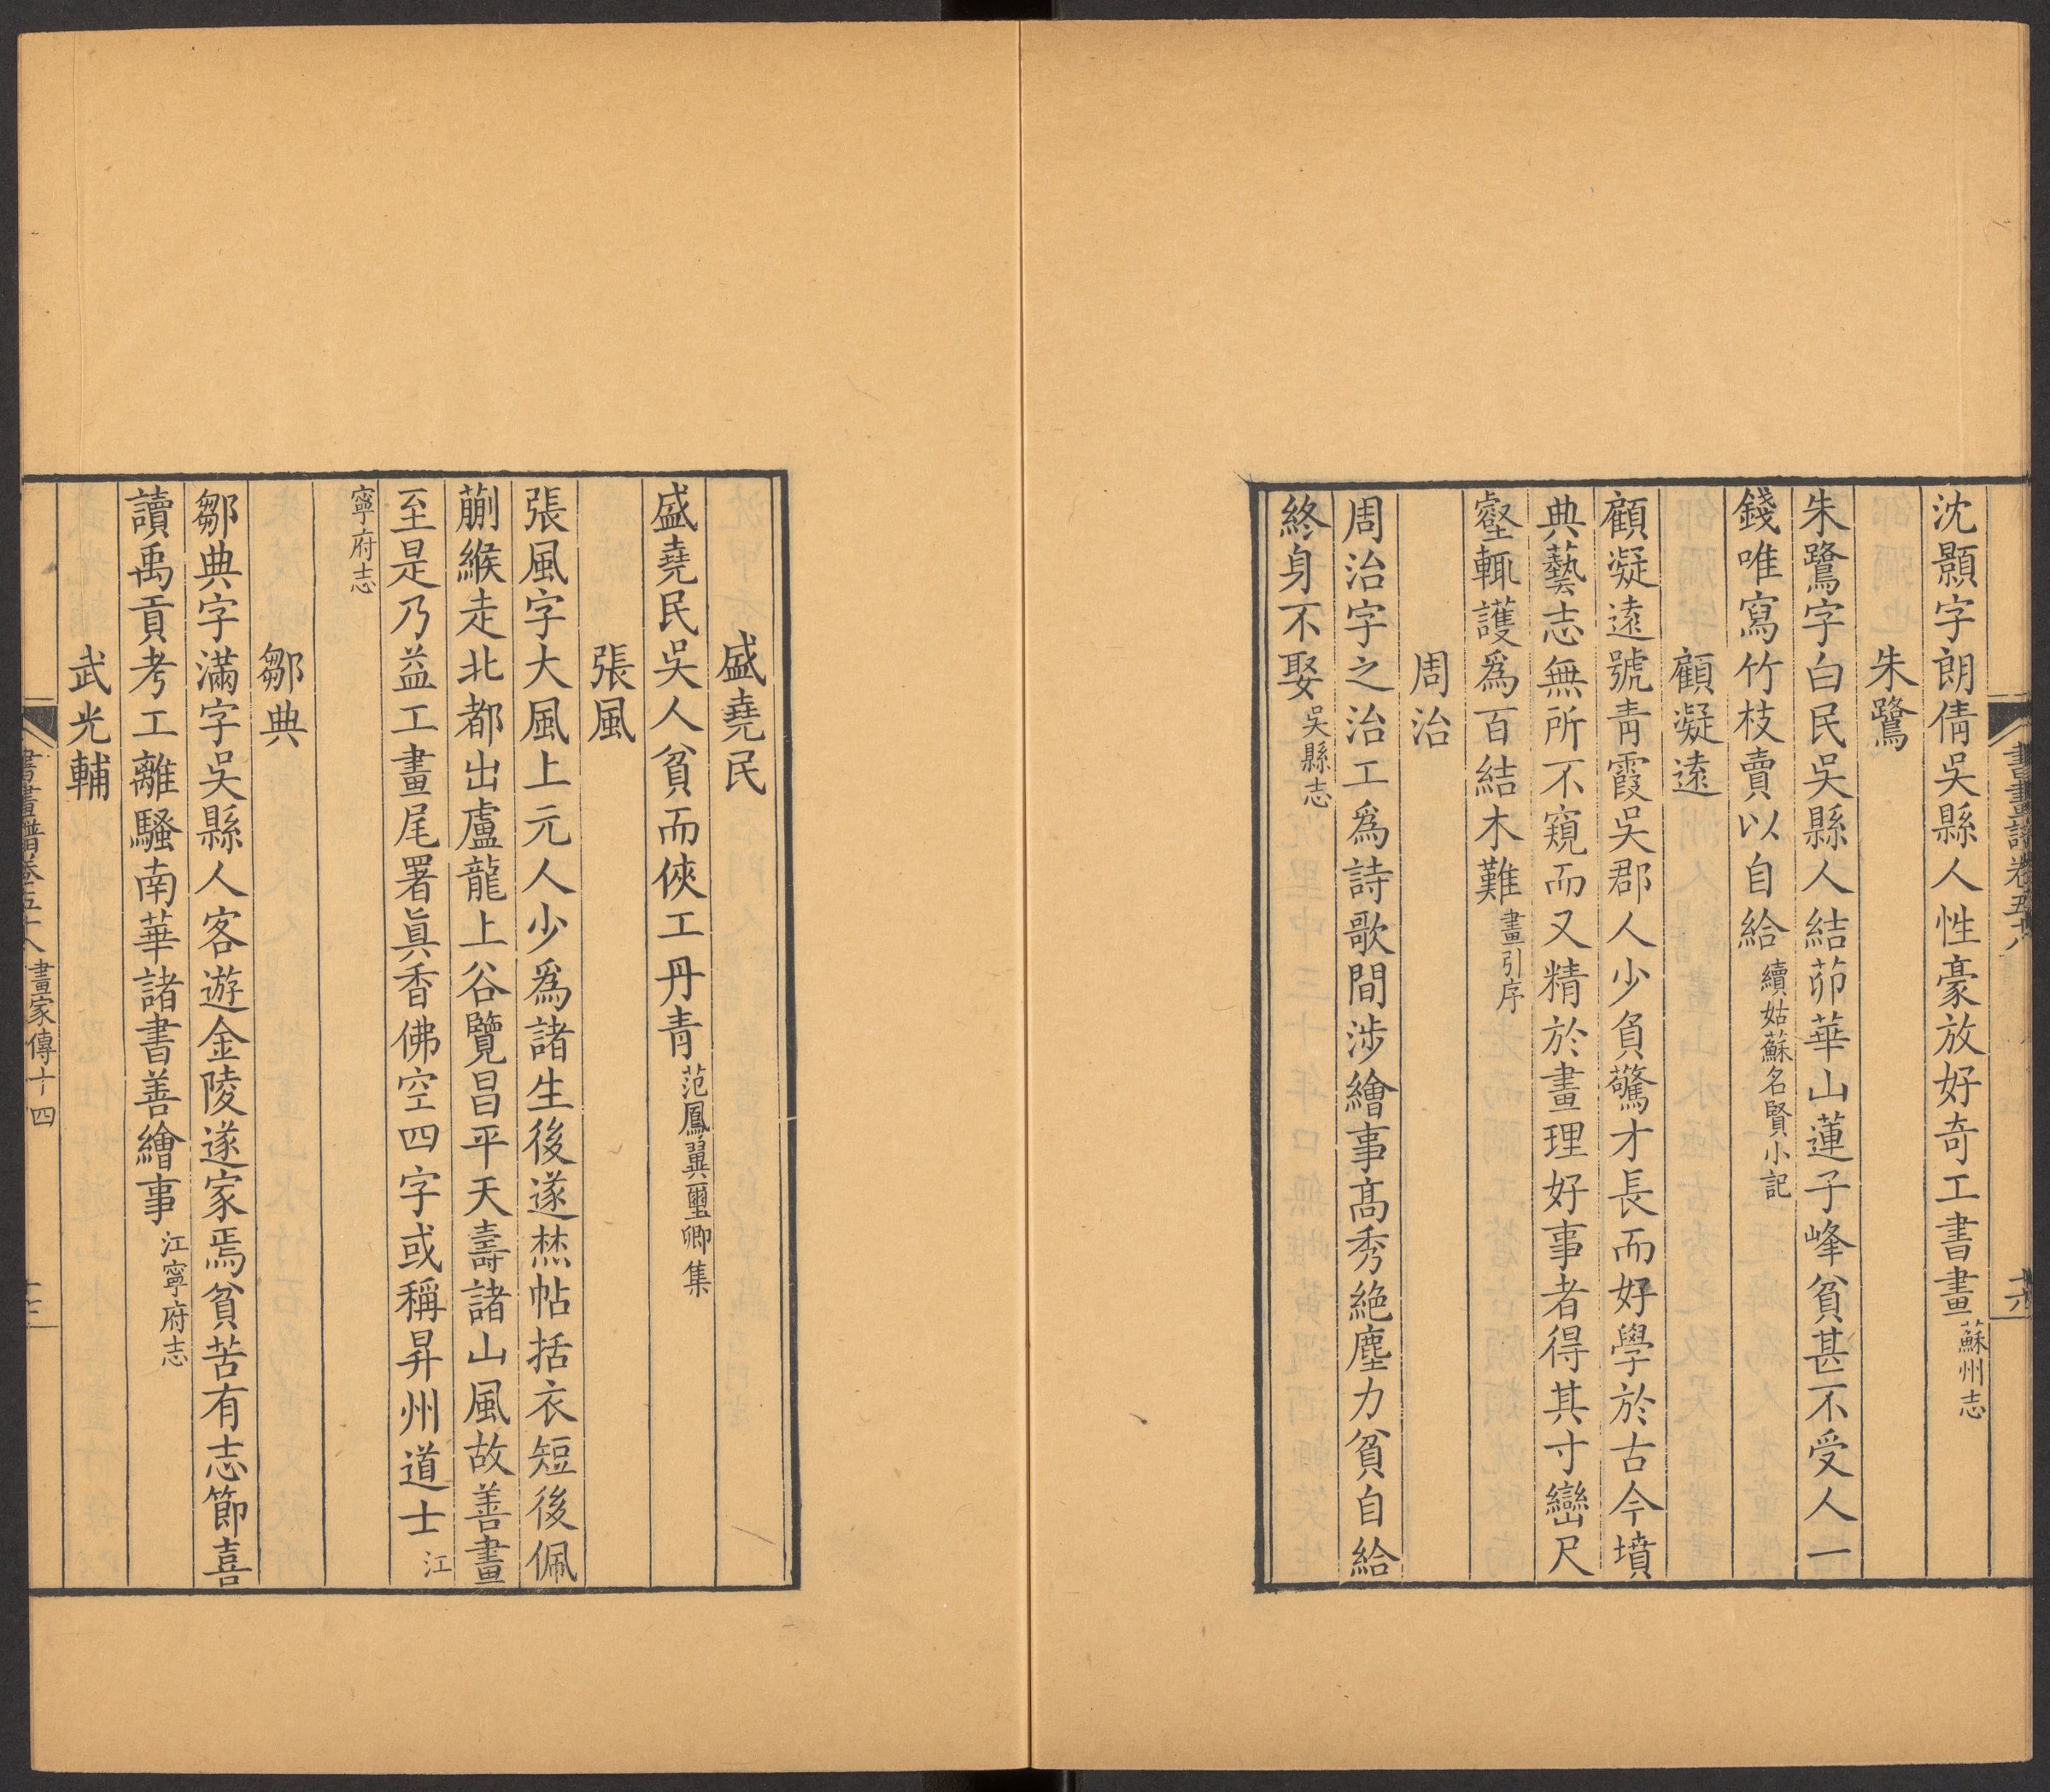 沈顥字朗倩吳縣人性豪放好奇工書畫蘇州志
朱鷺
朱鷺字白民吳縣人結茆華山蓮子峰貧甚不受人一
錢唯寫竹枝賣以自給續姑蘇名賢小記
顧凝遠
顧凝遠號靑霞吳郡人少負驚才長而好學於古今墳
典藝志無所不窺而又精於畫理好事者得其寸巒尺
壑輒護爲百結木難畫引序
周治
周治字之治工爲詩歌間涉繪事高秀絶塵力貧自給
終身不娶吳縣志
盛堯民
盛堯民吳人貧而俠工丹靑范鳳翼璽卿集
張風
張風字大風上元人少爲諸生後遂焚帖括衣短後佩
蒯緱走北都出盧龍上谷覽昌平天壽諸山風故善畫
至是乃益工畫尾署眞香佛空四字或稱昇州道士江
寧府志
鄒典
鄒典字滿字吳縣人客遊金陵遂家焉貧苦有志節喜
讀禹貢考工離騷南華諸書善繪事江寧府志
武光輔
書畫譜卷五十八 畫家傳十四